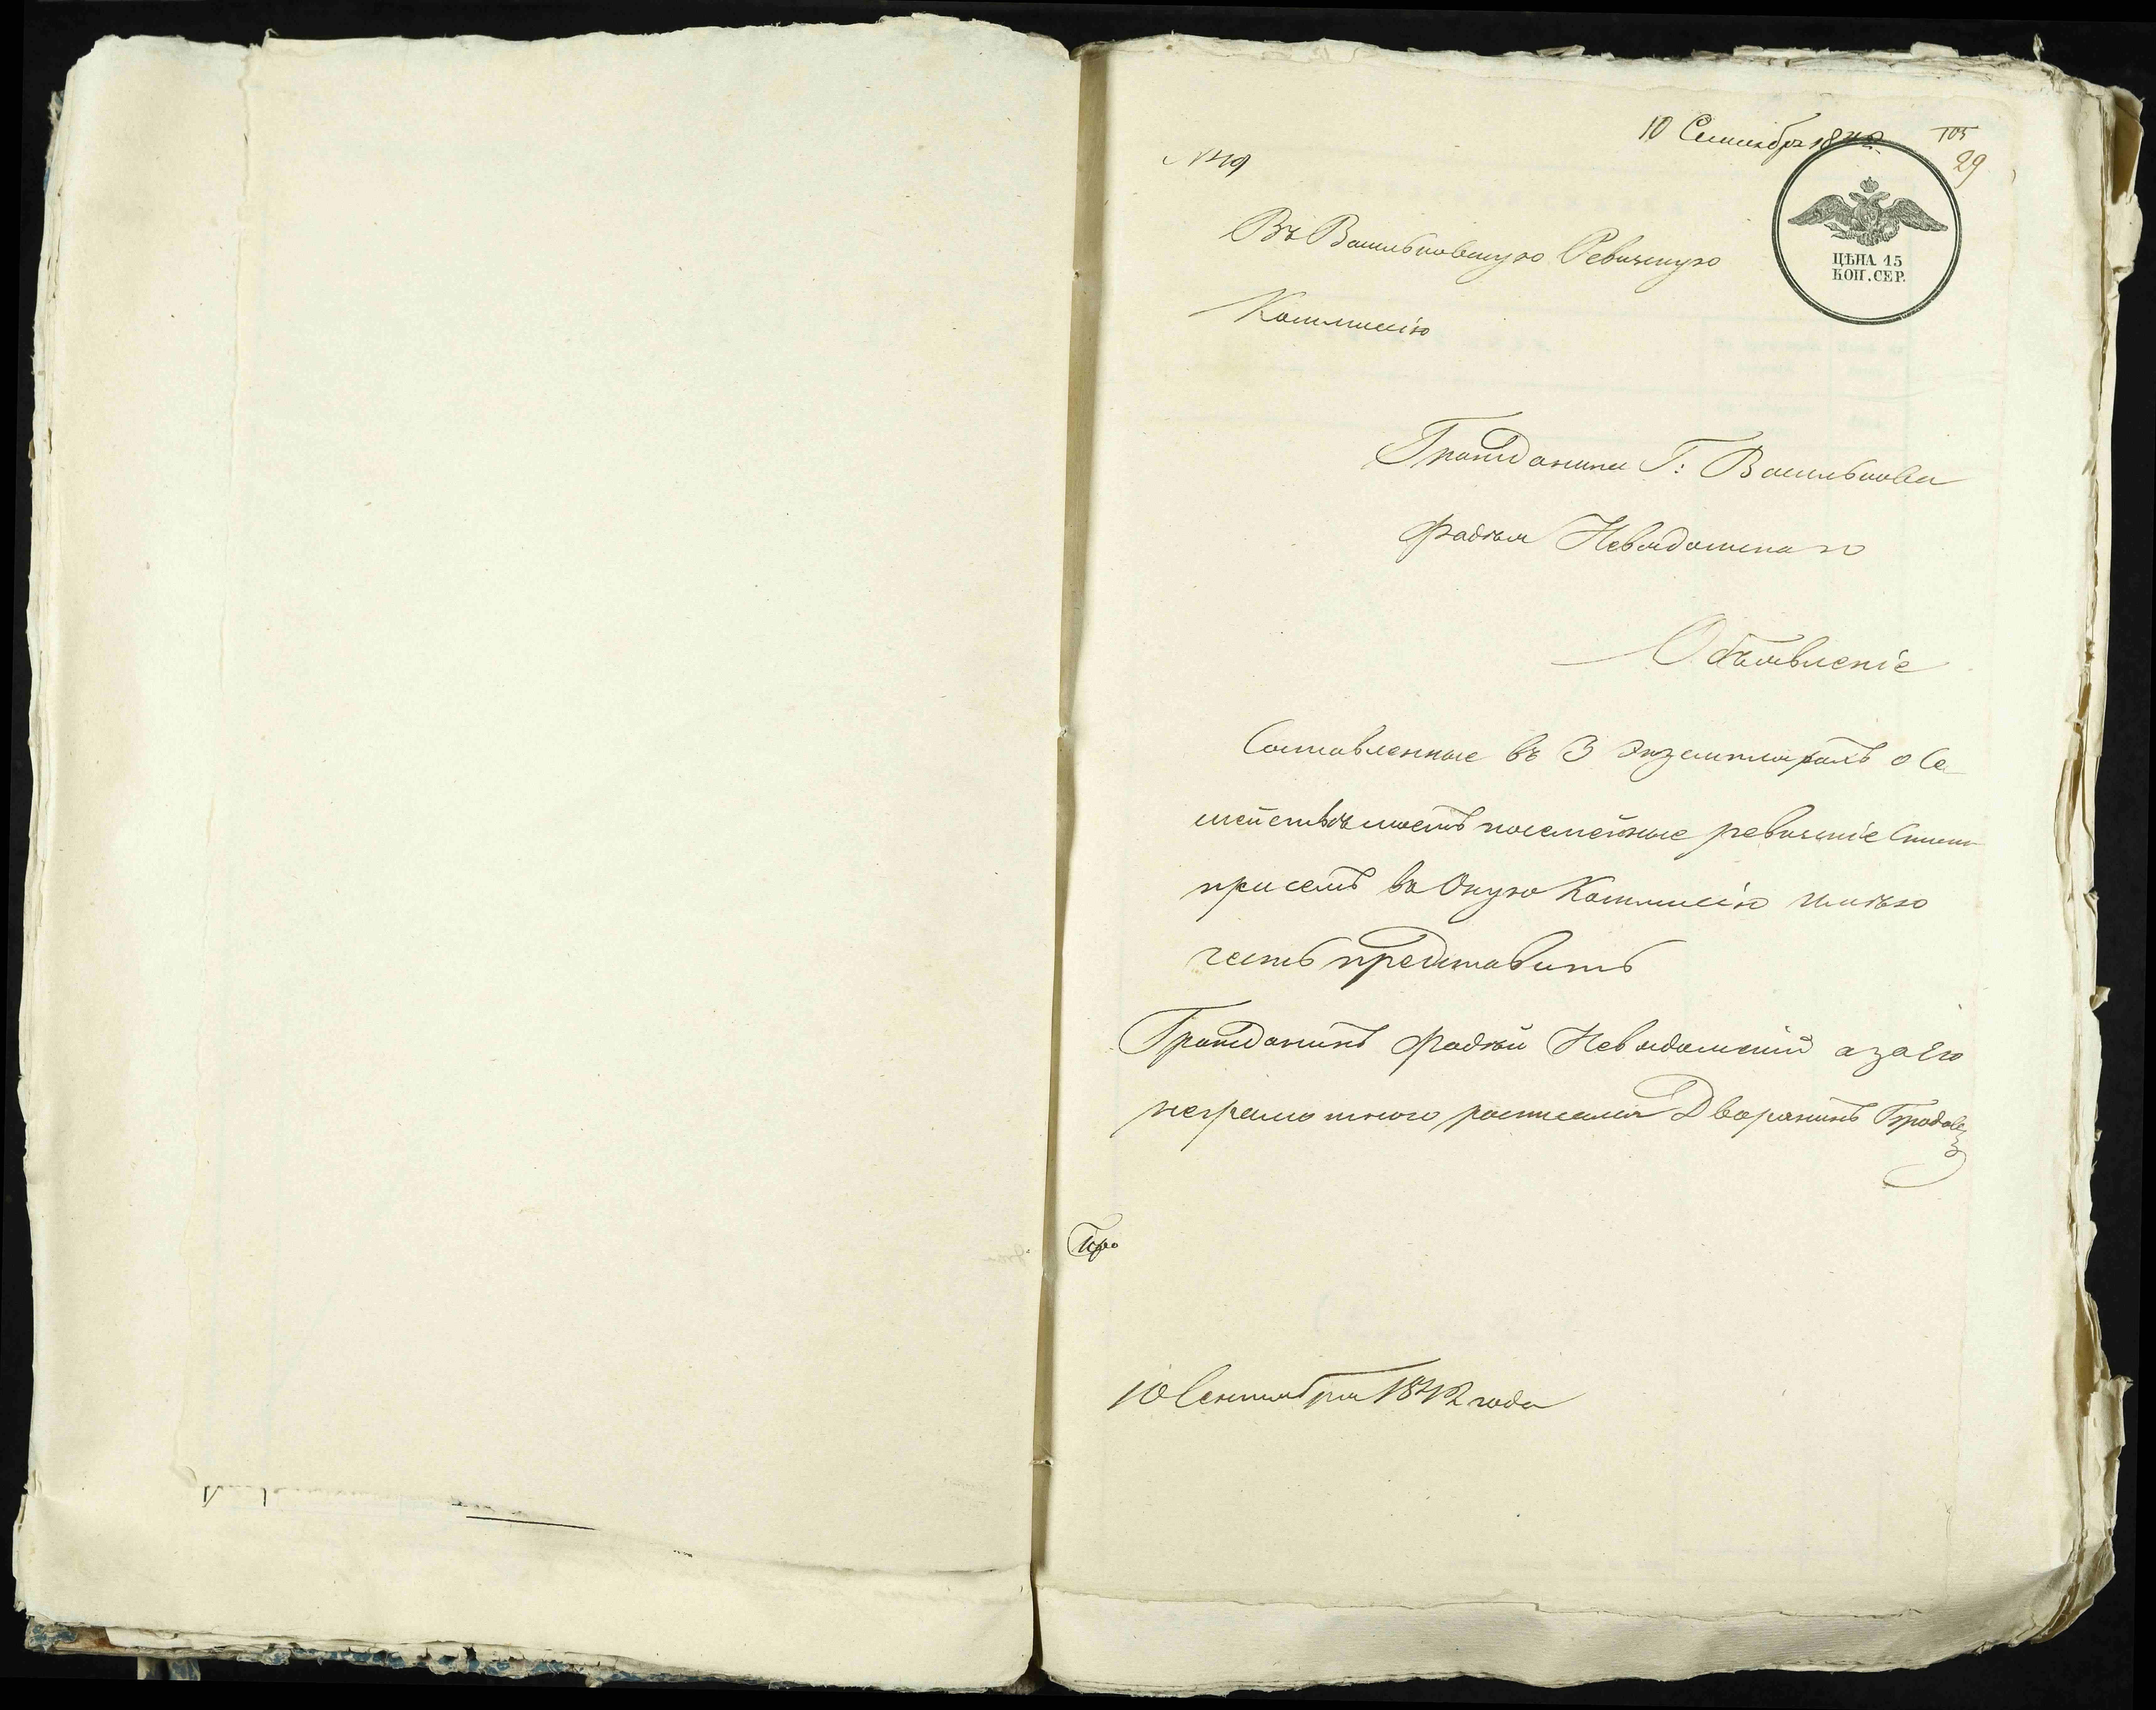 10 Сентября 1842
105
№ 49
29
Въ Васильковскую Ревизскую
ЦѢНА 15
КОП. СЕР.
Коммисію
Гражданина Г: Василькова
Фадѣя Невядомскаго
Объявленіе
Составленные въ 3 Экземплярахъ о Се-
мействѣ моемъ посемейные ревизскіе Списки
при семъ въ Оную Коммисію имѣю
честь представить
Гражданинъ Фадѣй Невядомскій а за Его
неграмотного росписался Дворянинъ
10 Сентября 1842 года